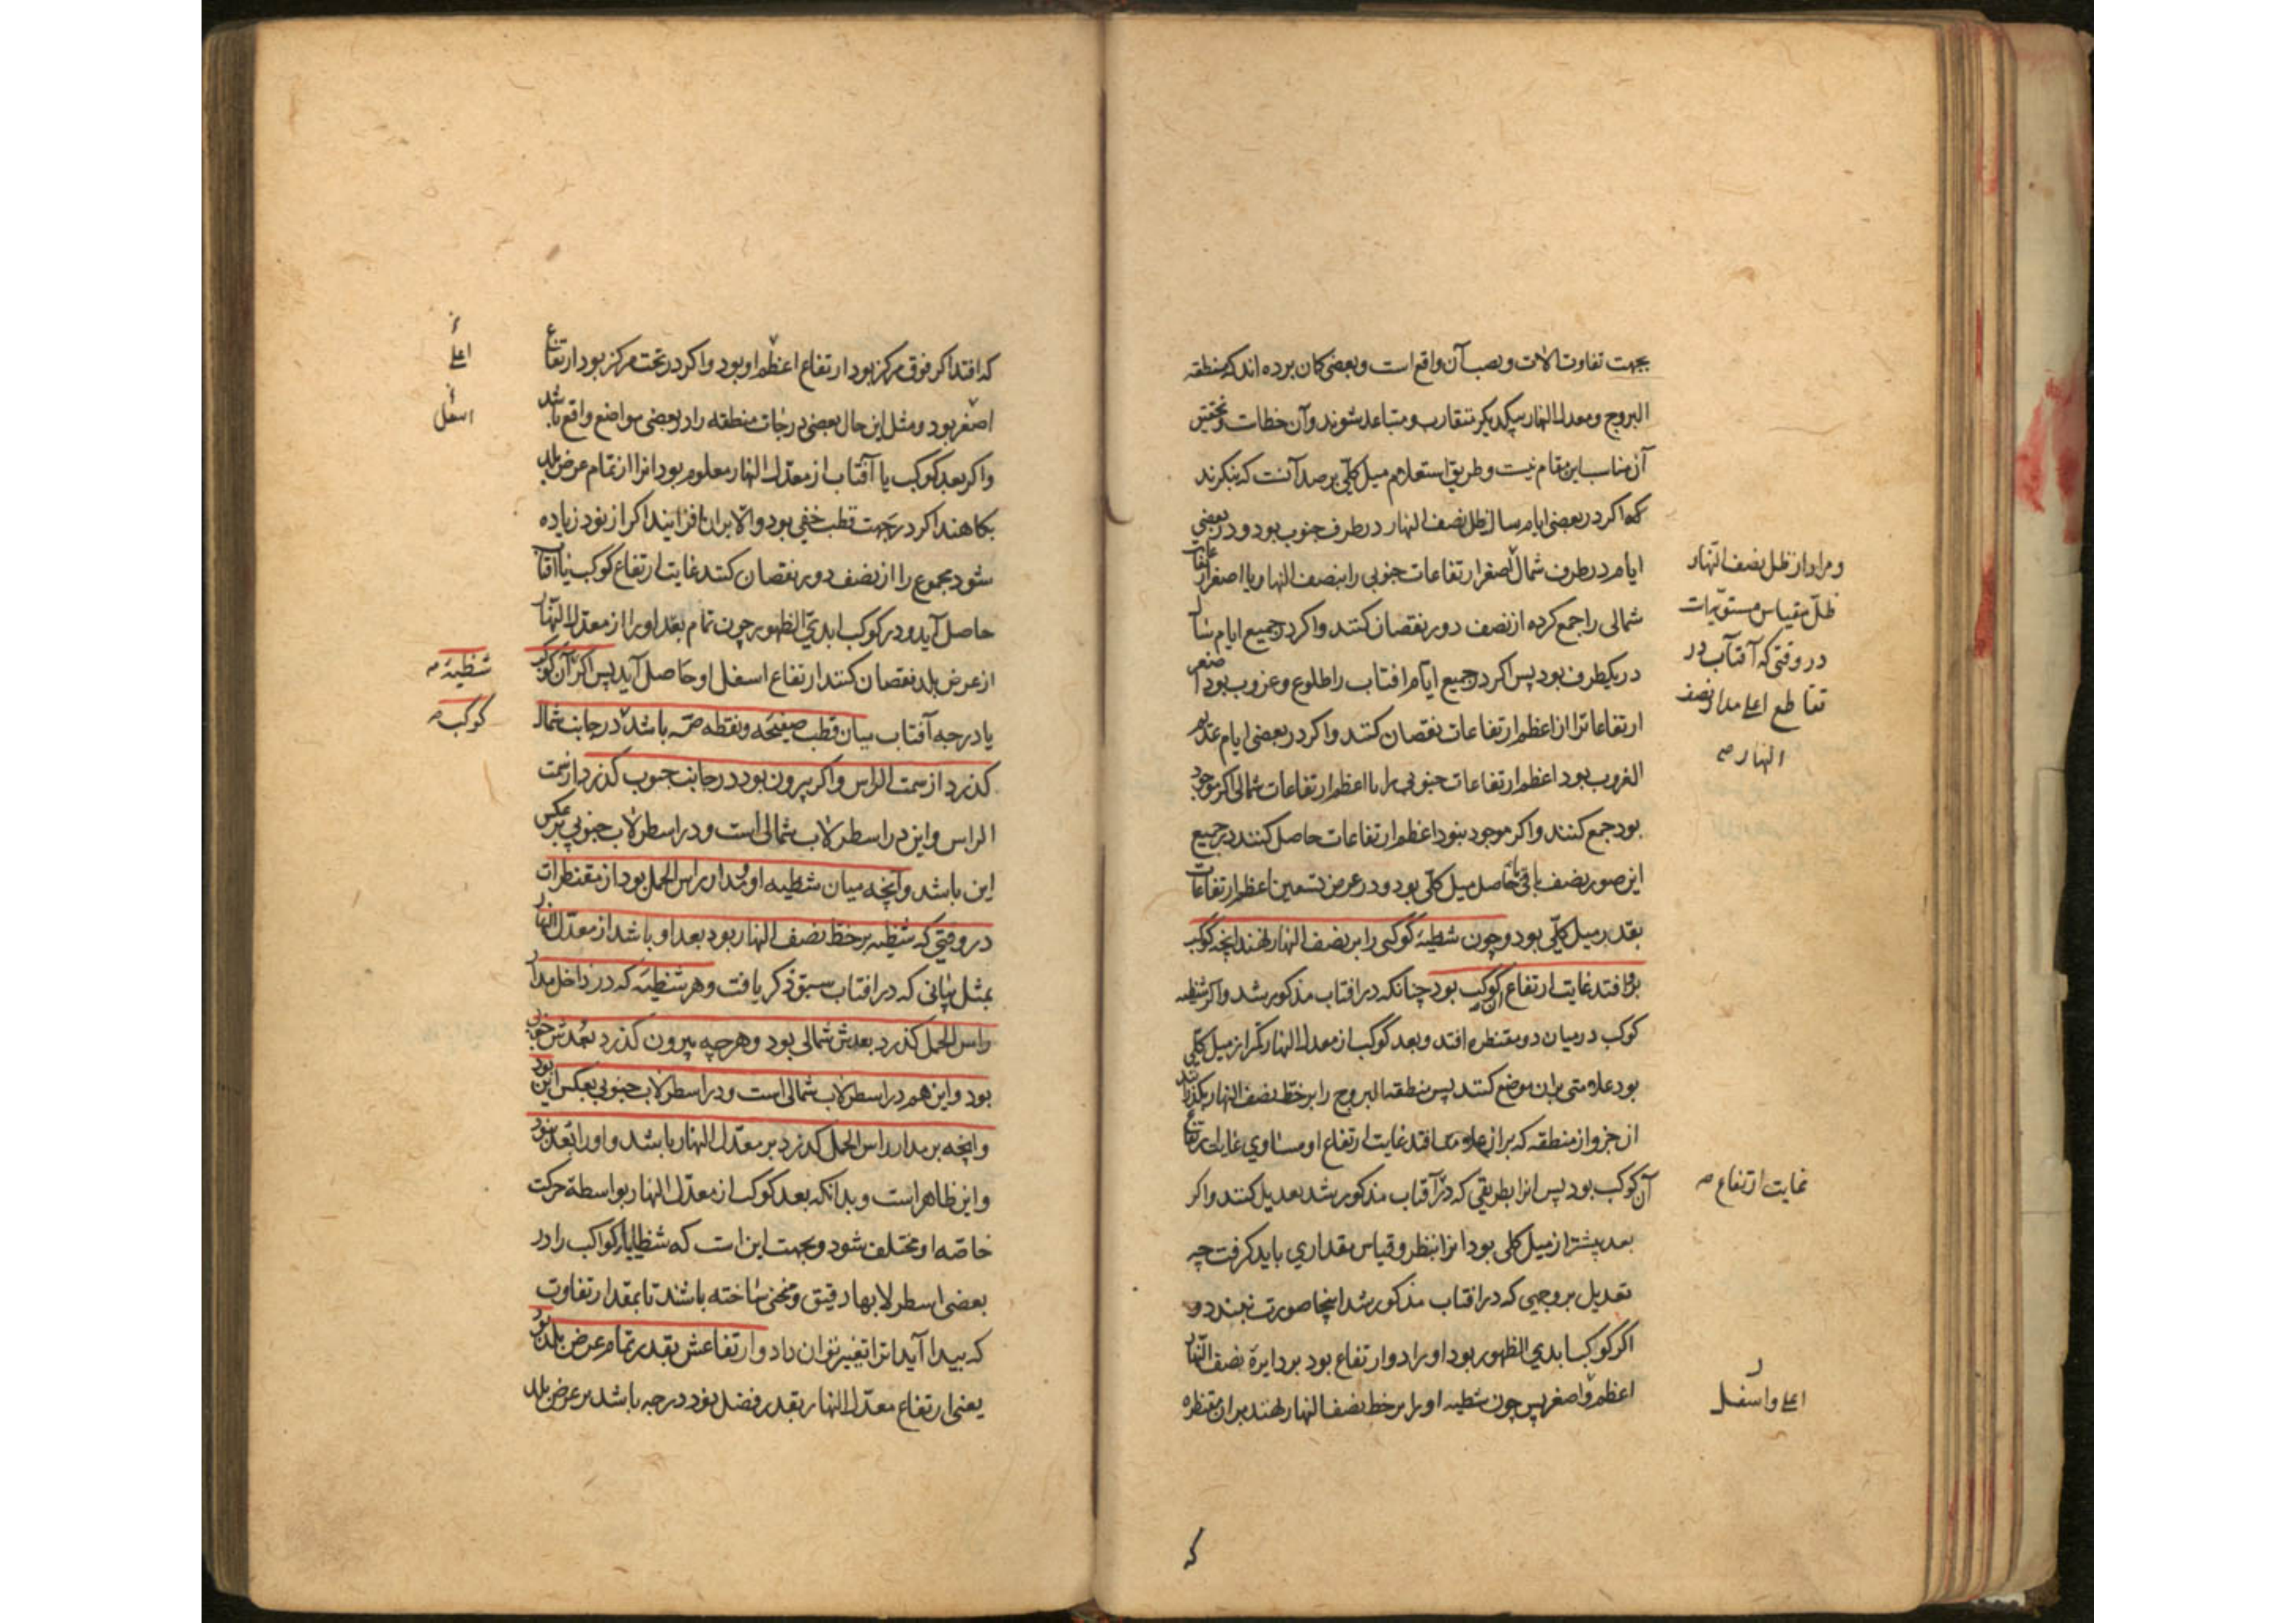 بجهت تفاوت آلات و نصب آن واقع است و بعضی کمان برده اند که منطقه
البروج و معدل النهار بیکدیکر متقارب و متباعد شوند و آن خطاست و تحقیق
آن مناسب این مقام نیست و طریق استعلام میل کلّی برصد آنست که بنکرند
که اکر در بعضی ایام سال ظل نصف النهار در طرف جنوب بود و در بعضی
ایام در طرف شمال اصغر ارتفاعات جنوبی را بنصف النهار با اصغر ارتفاعات
شمالی را جمع کرده از نصف دور نقصان کنند و اکر در جمیع ایام سال
در یکطرف بود پس اکر در جمیع ایام افتاب را طلوع و غروب بود اصغر
ارتفاعاترا از اعظم ارتفاعات نقصان کنند و اکر در بعضی ایام عدیم
الغروب بود اعظم ارتفاعات جنوبی را با اعظم ارتفاعات شمالی اکر موجود
بود جمع کنند و اکر موجود نبود اعظم ارتفاعات حاصل کنند در جمیع
این صور نصف باقی یا حاصل میل کلّی بود و در عرض تسعین اعظم ارتفاعات
بقدر میل کلّی بود و چون شظیۀ کوکبی را بر نصف النهار نهند انچه کوکب
برو افتد غایت ارتفاع آن کوکب بود چنانکه در افتاب مذکور شد و اکر شظیه
کوکب در میان دو مقنطره افتد و بعد کوکب از معدل النهار کمتر از میل کلّی
بود علامتی بران موضع کنند پس منطقة البروج را بر خطّ نصف النهار بکذرانند
ان جزو از منطقه که بر ان علامت افتد غایت ارتفاع او مساوی غایت ارتفاع
آن کوکب بود پس انرا بطریقی که در آفتاب مذکور شد تعدیل کنند و اکر
بعد بیشتر از میل کلی بود انرا بنظر و قیاس مقداری باید کرفت چه
تعدیل بر وجهی که در افتاب مذکور شد اینجا صورت نبندد و
اکر کوکب ابدی الظهور بود او را دو ارتفاع بود بر دایرۀ نصف النّهار
اعظم و اصغر پس چون شظیه او را بر خط نصف النهار نهند بر ان مقنطره
و مراد از ظل نصف النّهار
ظلّ مقیاس مستویّرات
در وقتی که آفتاب در
تقاطع اعلی مدار و نصف
النهار صح
غایت ارتفاع صح
اعلی و اسفل
که
که افتد اکر فوق مرکز بود ارتفاع اعظم او بود و اکر در تحت مرکز بود ارتفاع
اصغر بود و مثل این حال بعضی درجات منطقه را در بعضی مواضع واقع باشد
و اکر بعد کوکب یا آفتاب از معدّل النهار معلوم بود انرا از تمام عرض بلد
بکاهند اکر در جهت قطب خفی بود و الا بران افزایند اکر از نود زیاده
شود مجموع را از نصف دور نقصان کنند غایت ارتفاع کوکب یا آفتاب
حاصل آید و در کوکب ابدیّ الظهور چون تمام بعد او را از معدل النّهار
از عرض بلد نقصان کنند ارتفاع اسفل او حاصل آید پس اکر آن کوکب
یا درجه آفتاب میان قطب صفیحه و نقطه باشد در جانب شمال
کذرد از سمت الراس و اکر بیرون بود در جانب جنوب کذرد از سمت
الراس و این در اسطرلاب شمالی است و در اسطرلاب جنوبی بر عکس
این باشد و آنچه میان شظیه او و مدار راس الحمل بود از مقنطرات
در وقتی که شظیه بر خط نصف النهار بود بعد او باشد از معدّل النهار
بمثل بیانی که در افتاب سبق ذکر یافت و هر شظیه که در داخل مدار
راس الحمل کذرد بعدش شمالی بود و هر چه بیرون کذرد بعدش جنوبی
بود و این هم در اسطرلاب شمالی است و در اسطرلاب جنوبی بعکس این بود
و انچه بر مدار راس الحمل کذرد بر معدّل النهار باشد و او را بعد نبود
و این ظاهر است و بدانکه بعد کوکب از معدّل النهار بواسطۀ حرکت
خاصّه او مختلف شود و بجهت این است که شظایای کواکب را در
بعضی اسطرلابها دقیق و منحنی ساخته باشند تا بمقدار تفاوت
که پیدا آید انرا تغییر توان داد و ارتفاعش بقدر تمام عرض بلد بود
یعنی ارتفاع معدّل النهار بقدر فضل نود درجه باشد بر عرض بلد
اعلی
اسفل
شظیۀ صح
کوکب صح